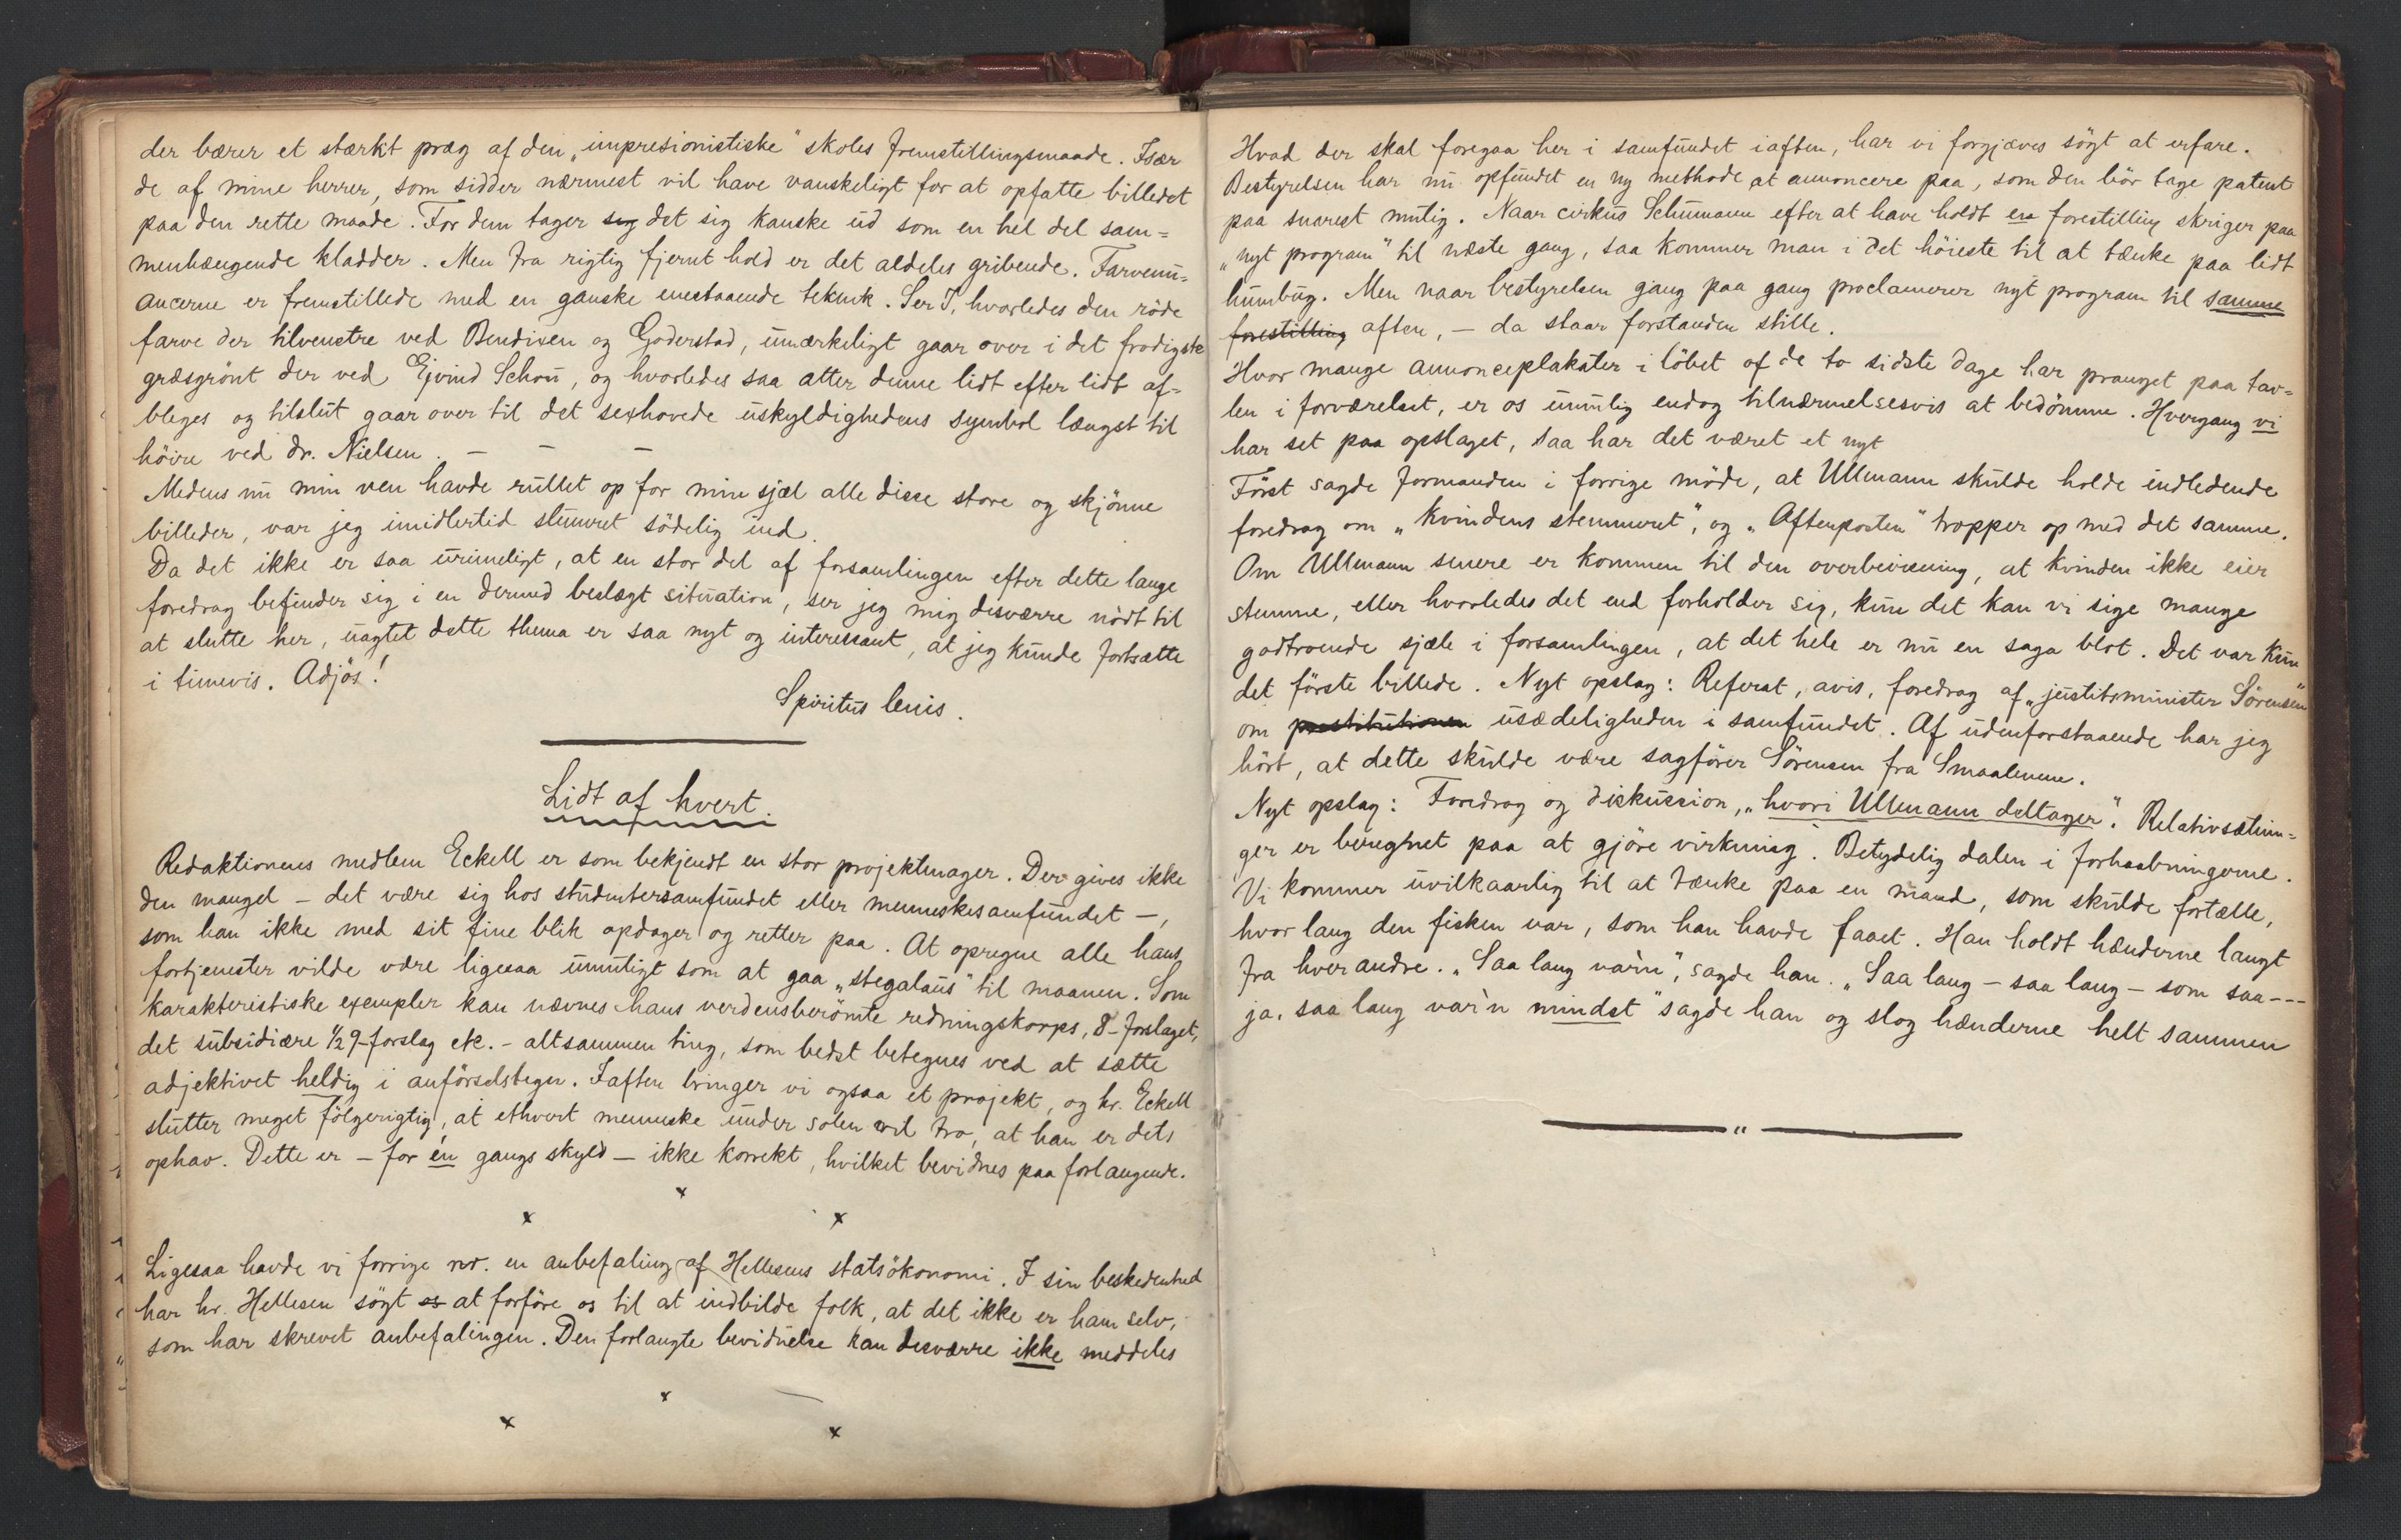 der bærer et stærkt præg af den „impresionistiske" skoles fremstillingsmaade. Især
de af mine herrer, som sidder nærmest vil have vanskeligt for at opfatte billedet
paa den rette maade. For dem tager sig det sig kanske ud som en hel del sam=
menhængende kladder. Men fra rigtig fjernt hold er det aldeles gribende. Farvenü=
ancerne er fremstillede med en ganske enestaaende teknik. Ser I, hvorledes den röde
farve der tilvenstre ved Bendixen og Goderstad, umærkeligt gaar over i det frodigste
græsgrönt der ved Ejvind Schou, og hvorledes saa atter denne lidt efter lidt af=
bleges og tilslut gaar over til det sexhovede uskyldighedens symbol længst til
höire ved dr. Nielsen. — — —
Medens nu min ven havde rullet op for min sjæl alle disse store og skjönne
billeder, var jeg imidlertid slumret södelig ind.
Da det ikke er saa urimeligt, at en stor del af forsamlingen efter dette lange
foredrag befinder sig i en dermed beslægt situation, ser jeg mig desværre nödt til
at slutte her, uagtet dette thema er saa nyt og interessant, at jeg kunde fortsætte
i timevis. Adjös!
Spiritus lenis.
Lidt af hvert.
Redaktionens medlem Eckell er som bekjendt en stor projektmager. Der gives ikke
den mangel — det være sig hos studentersamfundet eller menneskesamfundet —,
som han ikke med sit fine blik opdager og retter paa. At opregne alle hans
fortjenester vilde være ligesaa umuligt som at gaa „stegalaus" til maanen. Som
karakteristiske exempler kan nævnes hans verdensberömte redningskorps, 8-forslaget,
det subsidiære ½9-forslag etc. - altsammen ting, som bedst betegnes ved at sætte
adjektivet heldig i anförselstegn. Iaften bringer vi ogsaa et projekt, og hr. Eckell
slutter meget fölgerigtig, at ethvert menneske under solen vil tro, at han er dets
ophav. Dette er — for én gangs skyld — ikke korrekt, hvilket bevidnes paa forlangende.
x x x
Ligesaa havde vi forrige nr. en anbefaling af Hellesens statsökonomi. I sin beskedenhed
har hr. Hellesen sögt os at forföre os til at indbilde folk, at det ikke er ham selv,
som har skrevet anbefalingen. Den forlangte bevidnelse kan desværre ikke meddeles
x x x
Hvad der skal foregaa her i samfundet iaften, har vi forgjæves sögt at erfare.
Bestyrelsen har nu opfundet en ny methode at annoncere paa, som den bör tage patent
paa snarest mulig. Naar cirkus Schumann efter at have holdt en forestilling skriger paa
„nyt program" til næste gang, saa kommer man i det höieste til at tænke paa lidt
humbug. Men naar bestyrelsen gang paa gang proclamerer nyt program til samme
forestilling aften, — da staar forstanden stille.
Hvor mange annonceplakater i löbet af de to sidste dage har pranget paa tav=
len i forværelset, er os umulig endog tilnærmelsesvis at bedömme. Hvergang vi
har set paa opslaget, saa har det været et nyt
Först sagde formanden i forrige möde, at Ullmann skulde holde indledende
foredrag om „kvindens stemmeret", og „Aftenposten" tropper op med det samme.
Om Ullmann senere er kommen til den overbevisning, at kvinden ikke eier
stemme, eller hvorledes det end forholder sig, kun det kan vi sige mange
godtroende sjæle i forsamlingen, at det hele er nu en saga blot. Det var kun
det förste billede. Nyt opslag: Referat, avis, foredrag af „justitsminister Sörensen"
om prostitutionen usædeligheden i samfundet. Af udenforstaaende har jeg
hört, at dette skulde være sagförer Sörensen fra Smaalenene.
Nyt opslag: Foredrag og diskussion, „hvori Ullmann deltager". Relativsætnin=
ger er beregnet paa at gjöre virkning. Betydelig dalen i forhaabningerne.
Vi kommer uvilkaarlig til at tænke paa en mand, som skulde fortælle,
hvor lang den fisken var, som han havde faaet. Han holdt hænderne langt
fra hverandre. „Saa lang var'n", sagde han. „Saa lang — saa lang — som saa---
ja, saa lang var'n mindst" sagde han og slog hænderne helt sammen